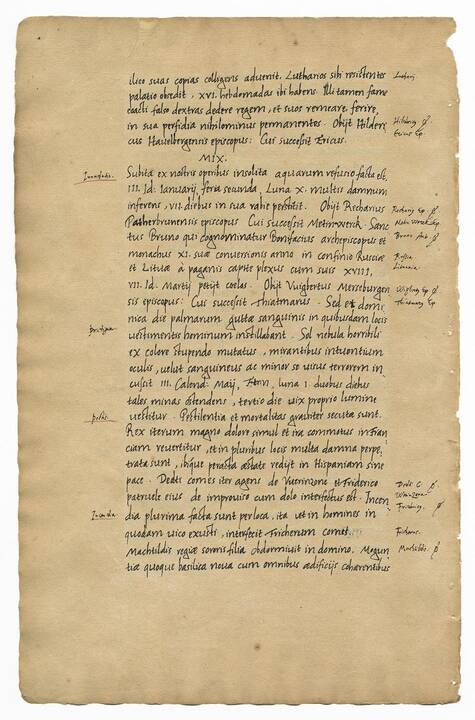 ilico suas copias colligens aduenit. Lutharios sibi resistentes
palatio obsedit, XVI. hebdomadas ibi habens. Illi tamen fame
coacti falso dextras dedere regem, et suos remeare ferire,
in sua perfidia nihilominus permanentes. Obijt Hilderi
cus Hauelbergensis episcopus: Cui successit Ericus.
MIX.
Subita ex nostris operibus insolita aquarum refusio facta est
III. Id: Ianuarij, feria secunda, Luna X. multis damnum
inferens, VII. diebus in sua rabie perstitit. Obijt Recharius
Patherbrunensis episcopus Cui successit Metinwerck. Sanc
tus Bruno qui cognominatur Bonifacius archepiscopus et
monachus XI. suæ conuersionis anno in confinio Rusciæ
et Lituæ à paganis capite plexus cum suis XVIII,
VII. Id: Martij petijt coelos. Obijt Vuigbertus Merseburgen
sis episcopus: Cui successit Thiatmarus. Sed et domi
nica die palmarum guttæ sanguinis in quibusdam locis
uestimentis hominum instillabant. Sol nebula horribili
ex colore stupendo mutatus, mirantibus intuentium
oculis, uelut sanguineus ac minor se uisus terrorem in
cussit III. Calend: Maij, luna I. duobus diebus
tales minas ostendens, tertio die uix proprio lumine
uestitur. Pestilentia et mortalitas grauiter secuta sunt.
Rex iterum magno dolore simul et ira commotus in Fran
ciam reuertitur, et in pluribus locis multa damna perpe,
trata sunt, ibique peracta æstate redijt in Hispaniam sine
pace. Dedi comes iter agens de Vuerinzone et Friderico
patruele eius de improuiso cum dolo interfectus est. Incen
dia plurima facta sunt per loca, ita vt in homines in
quodam uico exusti, interfecit Fricherum comes.
Machtildis regiæ sororis filia obdormiuit in domino. Mogun
tiæ quoque basilica noua cum omnibus ædificijs cohærentibus
Inundatio.
Prodigia.
pestis.
Incendia.
Lutharij
Ericus Ep
Metinwerck Ep
Bruno
Russia
Lituania
Wigbertus Ep
Thiatmarus Ep
Dedi C.
Machtildis.